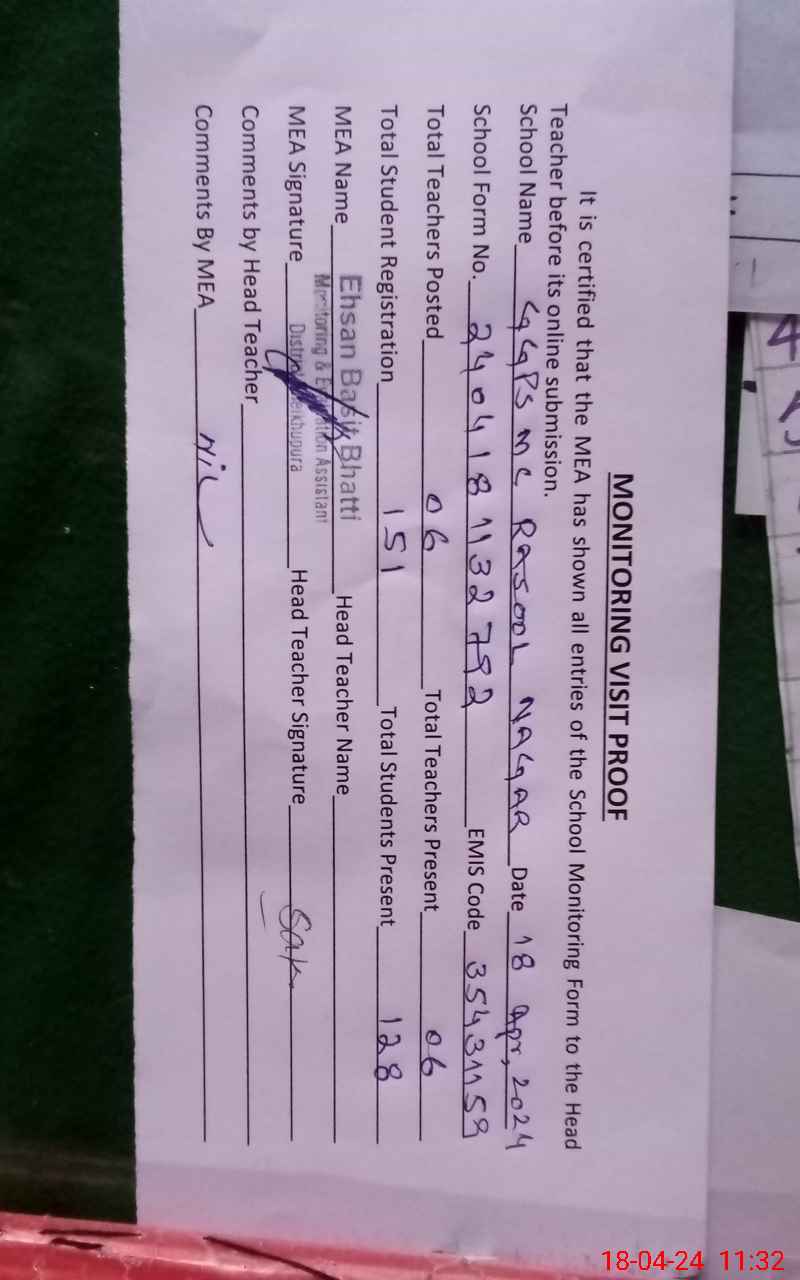 MONITORING VISIT PROOF
It is certified that the MEA has shown all entries of the School Monitoring Form to the Head
Teacher before its online submission.
School Name GGPS MC RASOOL NAGAR Date 18 Apr, 2024
School Form No. 2404181132792 EMIS Code 35431159
Total Teachers Posted 06 Total Teachers Present 06
Total Student Registration 151 Total Students Present 128
MEA Name Ehsan Basit Bhatti Head Teacher Name
Monitoring & Evaluation Assistant
MEA Signature District Sheikhupura Head Teacher Signature
Comments by Head Teacher
Comments By MEA Nil
18-04-24 11:32